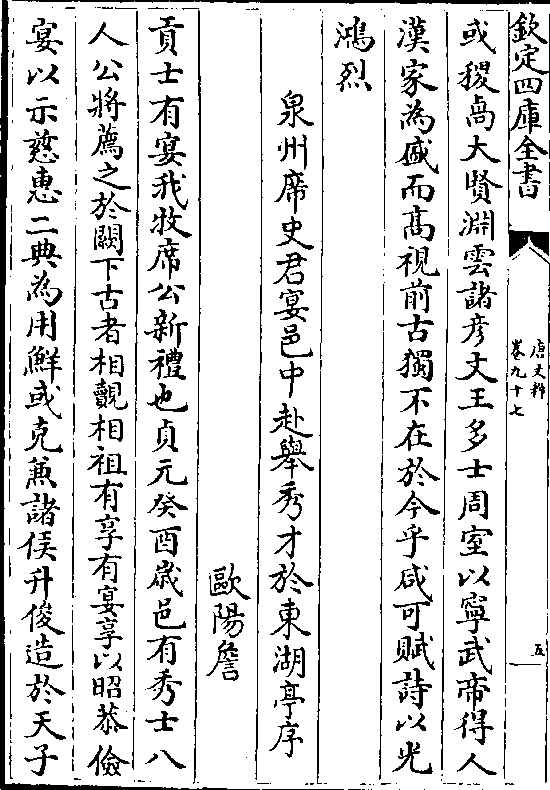 欽定四庫全書
唐文粹
卷九十七
五
或稷卨大賢淵雲諸彦文王多士周室以寧武帝得人
漢家為盛而髙視前古獨不在於今乎咸可賦詩以光
鴻烈
泉州席史君宴邑中赴舉秀才於東湖亭序
歐陽詹
貢士有宴我牧席公新禮也貞元癸酉嵗邑有秀士八
人公將薦之於闕下古者相覿相祖有享有宴享以昭恭儉
宴以示慈惠二典為用鮮或克兼諸侯升俊造於天子